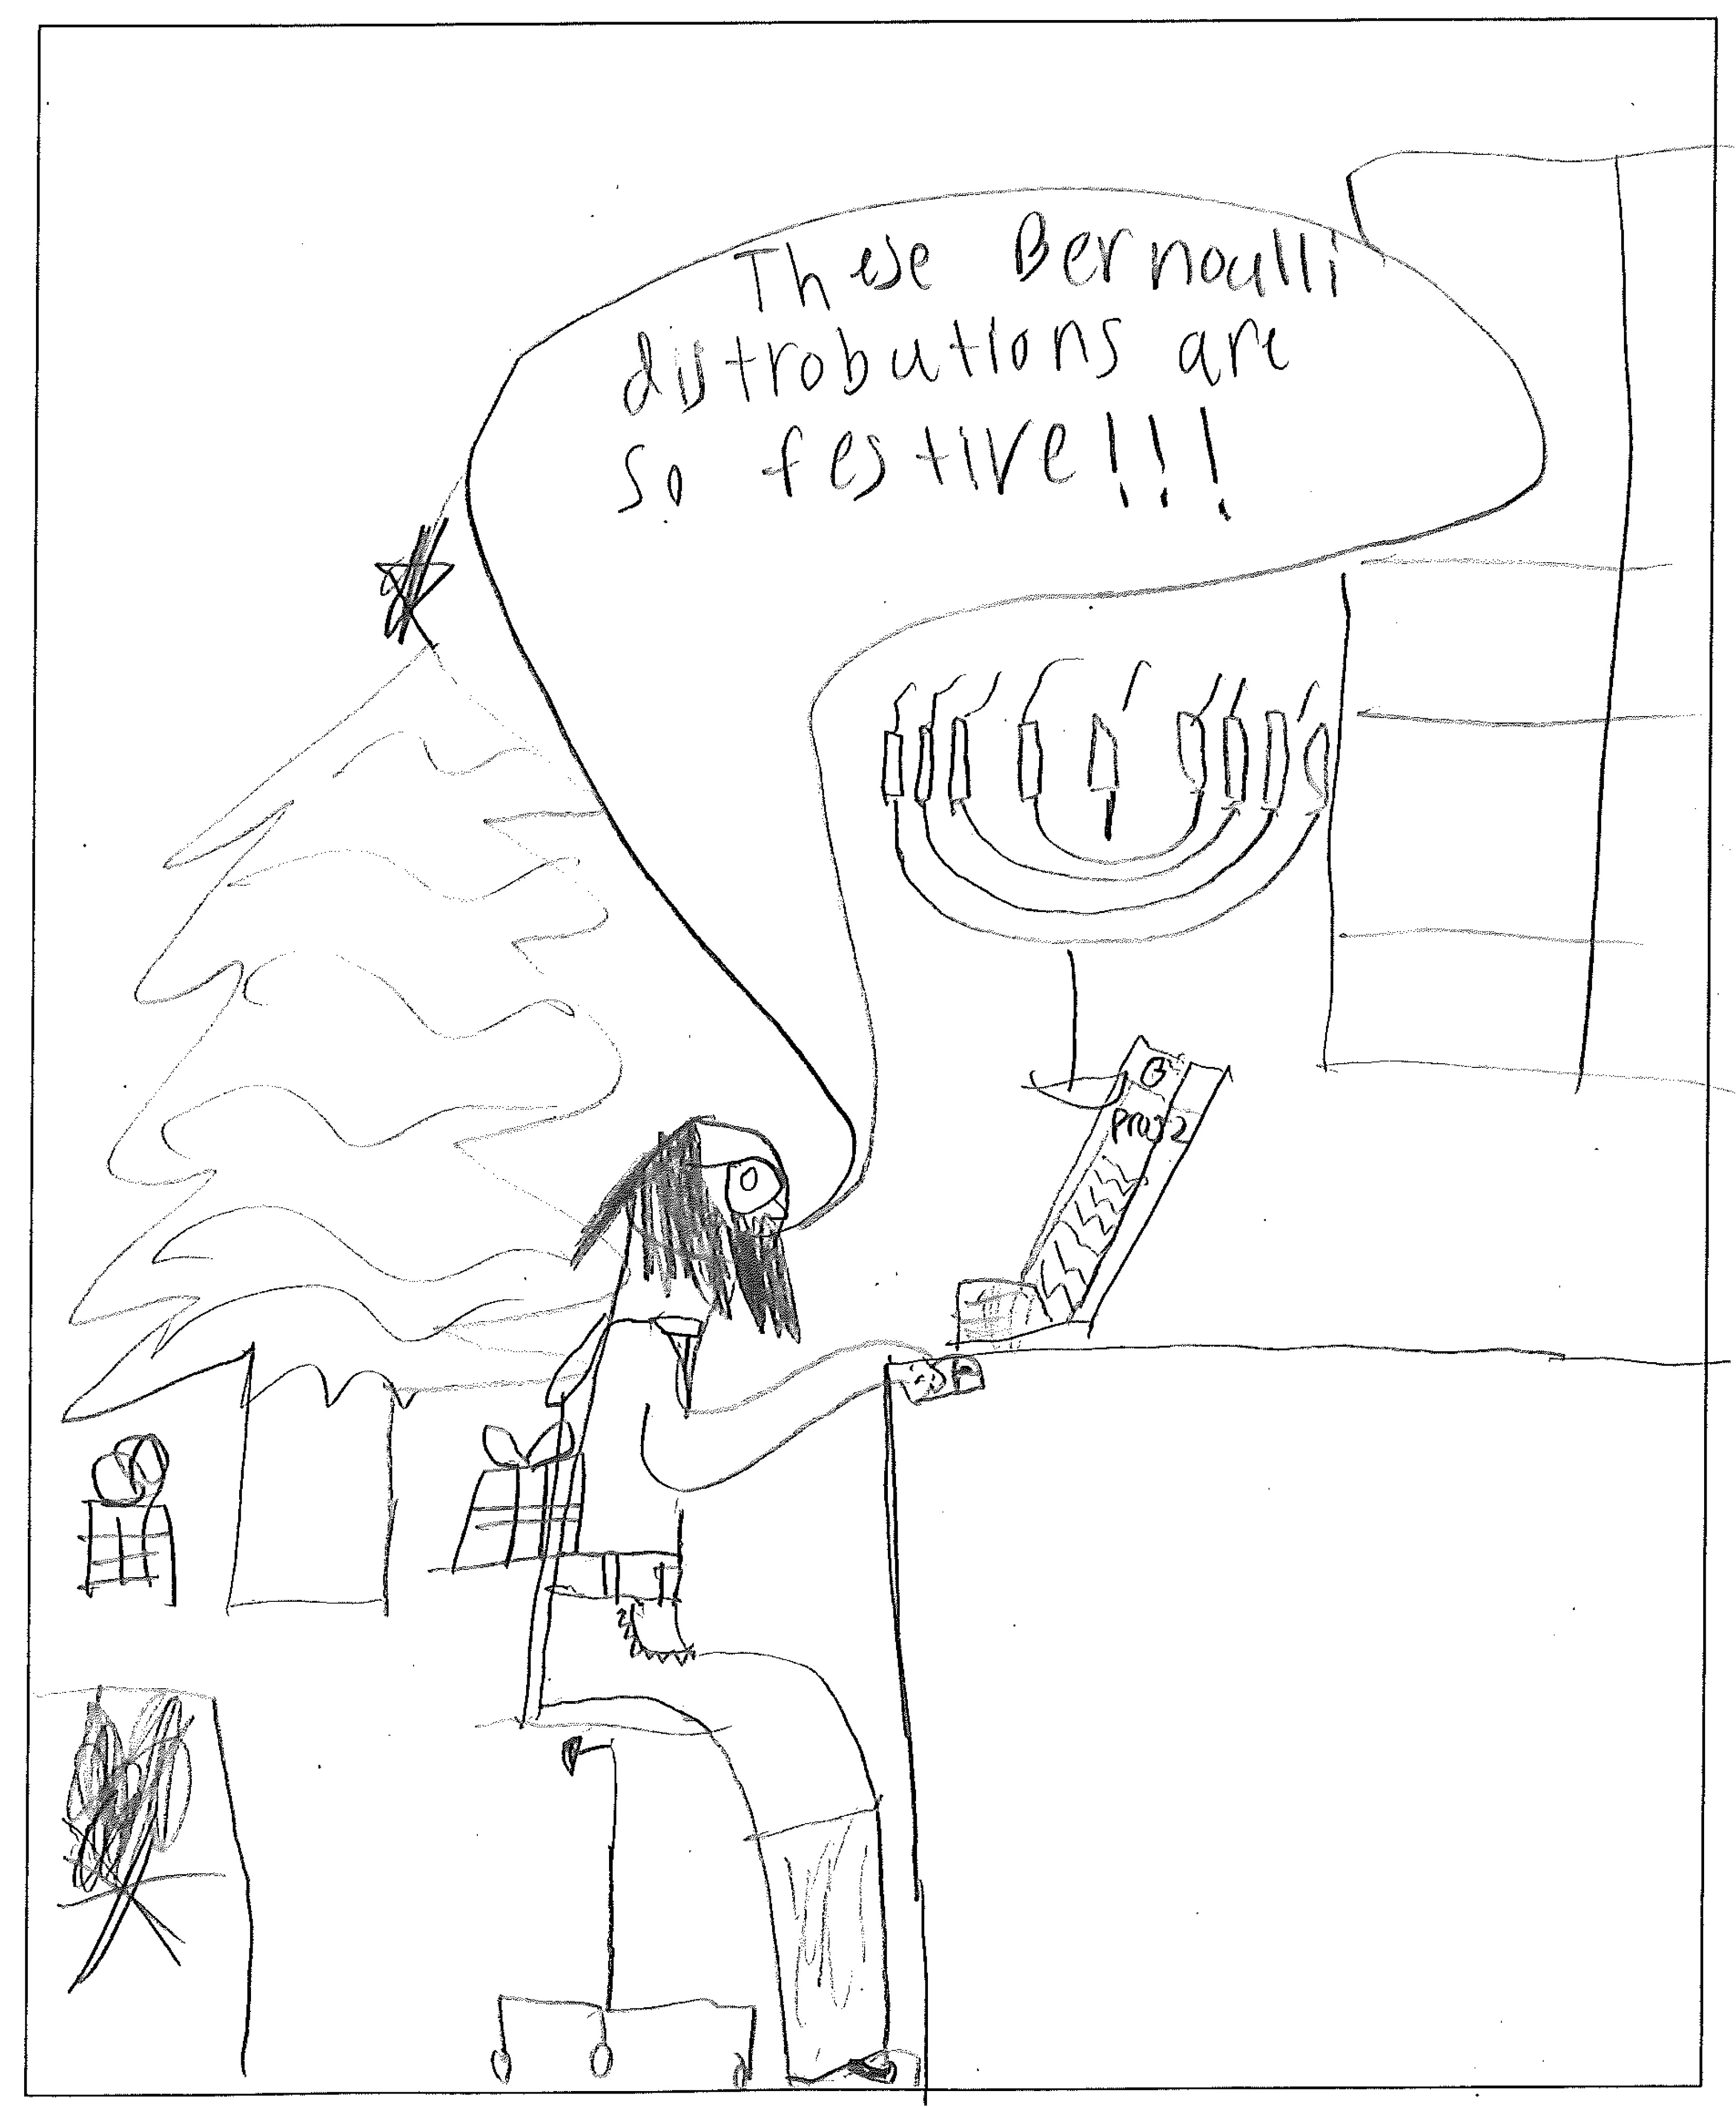 These Bernoulli
distrobutions are
so festive!!!
Proj 2